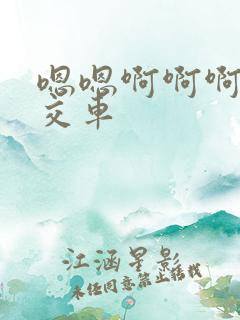 嗯嗯啊啊啊
交车
江涵星影
未经同意禁止转载